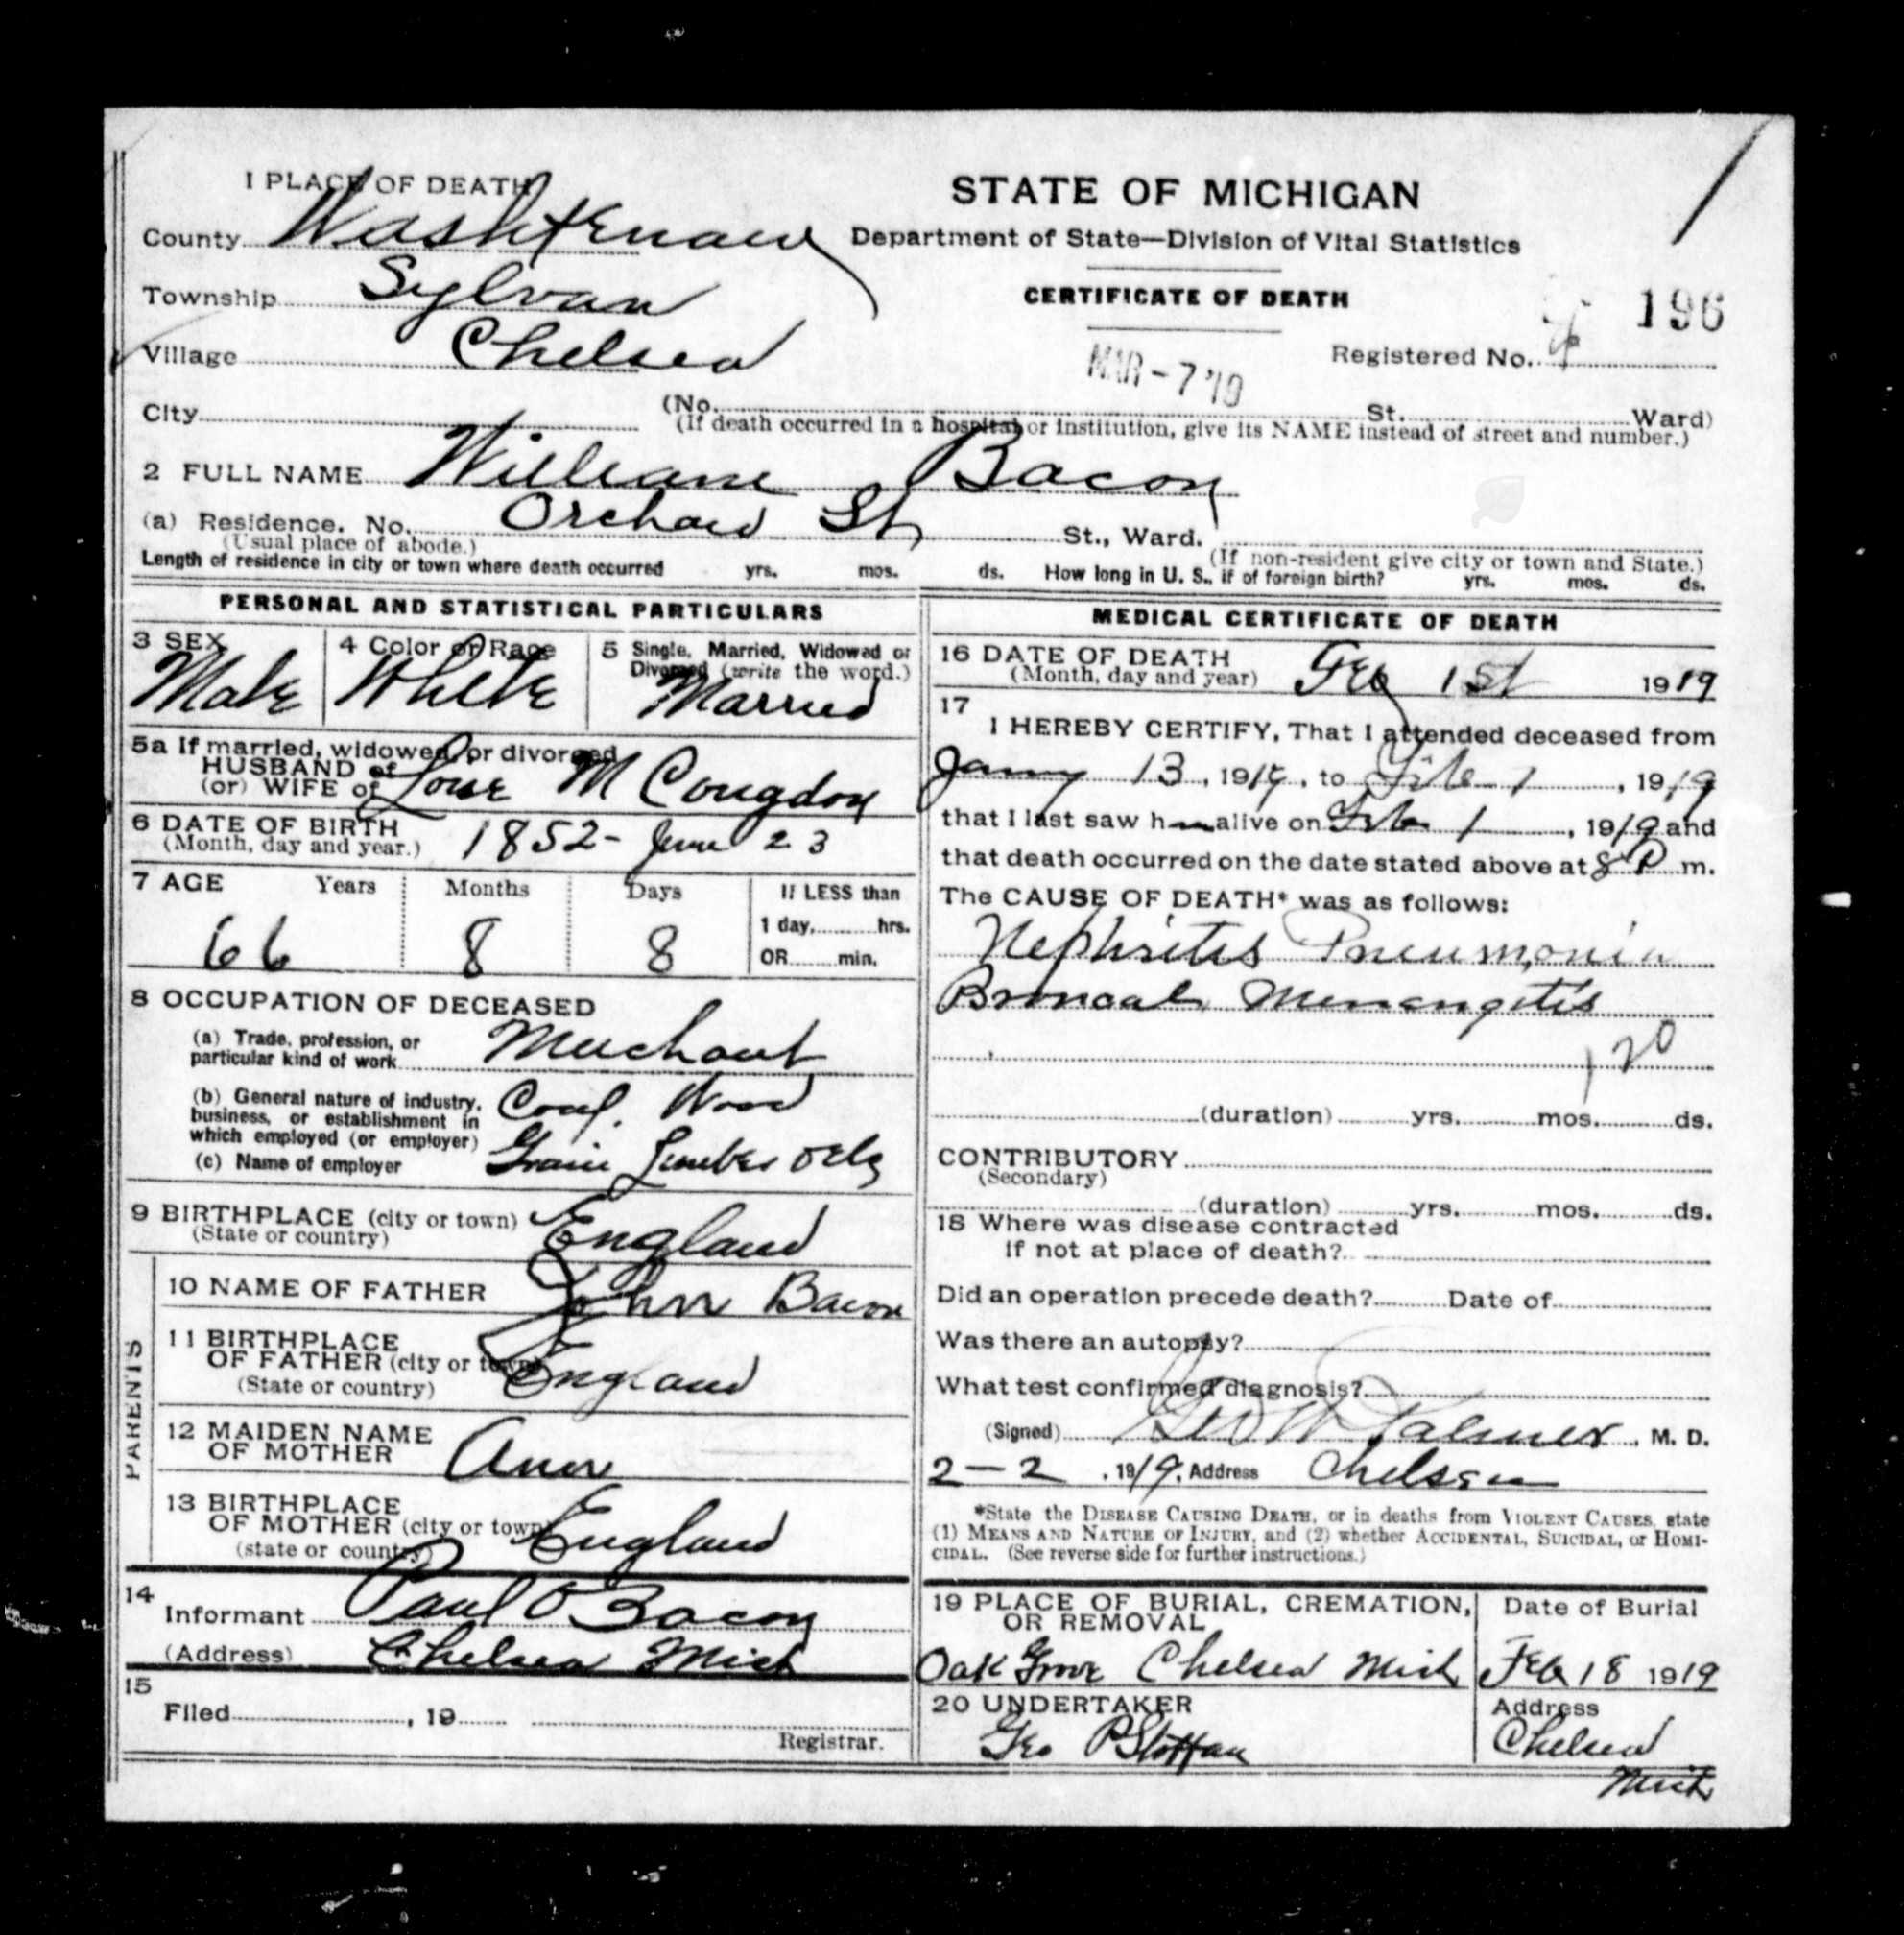 1 PLACE OF DEATH
STATE OF MICHIGAN
Department of State—Division of Vital Statistics
CERTIFICATE OF DEATH
County Washtenaw
Township Sylvan
Village Chelsea
196
Registered No. 4
MAR - 7 '19
City (No. St. Ward)
(If death occurred in a hospital or institution, give its NAME instead of street and number.)
2 FULL NAME William Bacon
(a) Residence. No. Orchard St St., Ward.
(Usual place of abode.) (If non-resident give city or town and State.)
Length of residence in city or town where death occurred yrs. mos. ds. How long in U. S., if of foreign birth? yrs. mos. ds.
PERSONAL AND STATISTICAL PARTICULARS
3 SEX
Male
4 Color or Race
White
5 Single, Married, Widowed or
Divorced (write the word.)
Married
5a If married, widowed, or divorced
HUSBAND of
(or) WIFE of M Congdon
6 DATE OF BIRTH
(Month, day and year.) 1852- June 23
7 AGE Years Months Days If LESS than
1 day, hrs.
OR min.
66 8 8
8 OCCUPATION OF DECEASED
(a) Trade, profession, or
particular kind of work Merchant
(b) General nature of industry,
business, or establishment in
which employed (or employer) Coal, Wood
(c) Name of employer Grain Lumber
9 BIRTHPLACE (city or town)
(State or country) England
PARENTS
10 NAME OF FATHER John Bacon
11 BIRTHPLACE
OF FATHER (city or town)
(State or country) England
12 MAIDEN NAME
OF MOTHER Ann
13 BIRTHPLACE
OF MOTHER (city or town)
(state or country) England
14
Informant Paul O Bacon
(Address) Chelsea Mich
15
Filed , 19
Registrar.
MEDICAL CERTIFICATE OF DEATH
16 DATE OF DEATH
(Month, day and year) Feb 1st 1919
17
I HEREBY CERTIFY, That I attended deceased from
Jany 13, 1919, to Feb 1, 1919
that I last saw him alive on Feb 1, 1919 and
that death occurred on the date stated above at 8 P m.
The CAUSE OF DEATH* was as follows:
Nephritis Pneumonia
Menangitis
120
(duration) yrs. mos. ds.
CONTRIBUTORY
(Secondary)
(duration) yrs. mos. ds.
18 Where was disease contracted
if not at place of death?
Did an operation precede death? Date of
Was there an autopsy?
What test confirmed diagnosis?
(Signed) Geo W Palmer, M. D.
2-2, 1919, Address Chelsea
*State the DISEASE CAUSING DEATH, or in deaths from VIOLENT CAUSES, state
(1) MEANS AND NATURE OF INJURY, and (2) whether ACCIDENTAL, SUICIDAL, or HOMI-
CIDAL. (See reverse side for further instructions.)
19 PLACE OF BURIAL, CREMATION,
OR REMOVAL
Oak Grove Chelsea Mich
Date of Burial
Feb 18 1919
20 UNDERTAKER
Geo P Staffan
Address
Chelsea
Mich